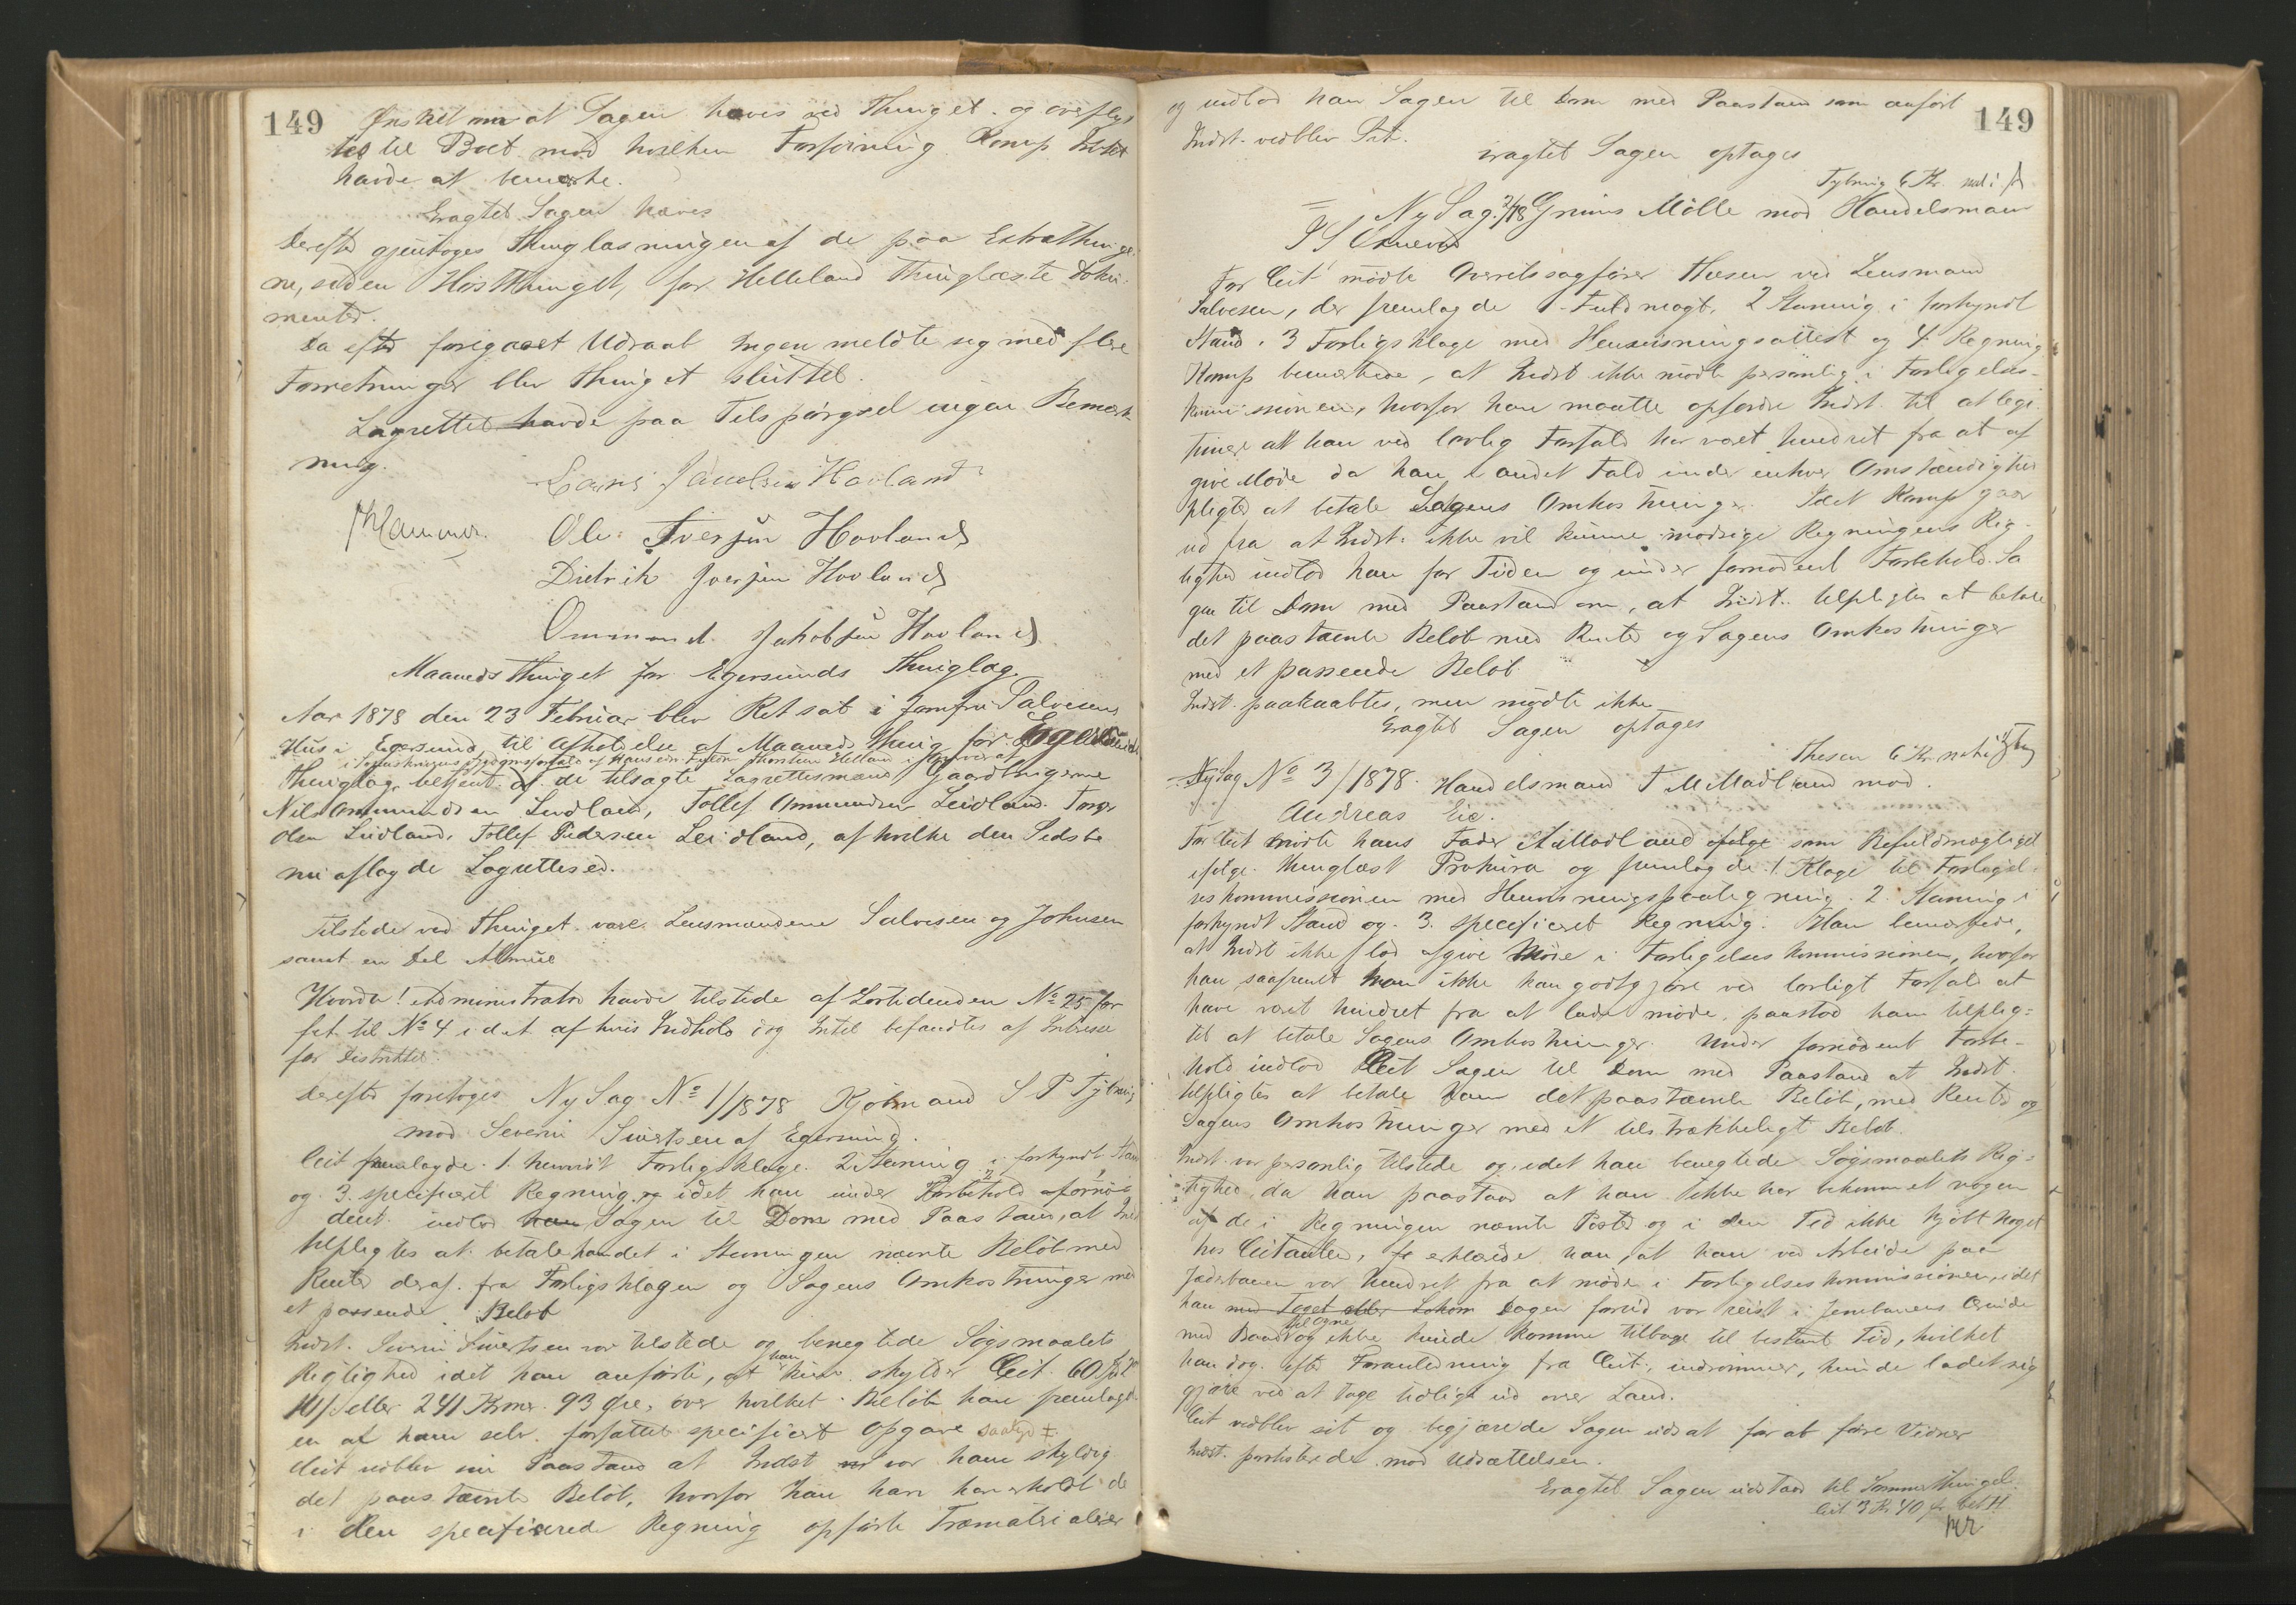 149
Ønsket om at Sagen hæves ved Thinget og overflyt
tes til Boet mod hvilken Forføining Komp. Indst
havde at bemærke.
Eragtet Sagen hæves
Derefter gjentoges Thinglæsningen af de paa Extrathinge
ne, siden Høstthinget, for Helleland Thinglæste Doku-
menter.
Da efter foregaaet Udraab Ingen meldte sig med flere
Forretninger blev Thinget sluttet.
Lagrettet havde paa Tilspørgsel ingen Bemærk
ning.
Lars Jacobsen Hovland
Hammer. Ole Iversen Hovland
Didrik Iversen Hovland
Ommund Jakobsen Hovland
Maanedsthinget for Egersunds Thinglag.
Aar 1878 den 23 Februar blev Ret sat i Jomfru Salvesens
Hus i Egersund til Afholdelse af Maanedsthing for Egersunds
i Sorenskriverens Sygdomsforfald af hans edsv. Fuldm. Thorstein Helland i Overvær af
Thinglag, betjent af de tilsagte Lagrettesmænd Gaardbrugerne
Nils Ommundsen Leidland, Tollef Ommundsen Leidland. Tonge
Olsen Leidland, Tollef Pedersen Leidland, af hvilke den Sidste
nu aflagde Lagrettesed.
Tilstede ved Thinget vare Lensmændene Salvesen og Johnsen
samt en Del Almue
Hvorda! Administrator havde tilstede af Lovtidenden No 25 for
f.A. til No 4 i d.A. af hvis Indhold dog Intet befandtes af Interesse
for Distriktet.
Derefter foretoges Ny Sag No 1/1878 Kjøbmand S P Tytning
mod Severin Sivertsen af Egersund.
Citt fremlagde 1. henvist Forligsklage 2 Stævning i forkyndt Stand
og 3. specificeret Regning og idet han under Forbehold fornø-
dent indlod han Sagen til Dom med Paastand, at Ind
tilpligtes at betale ham det i Stævningen nævnte Beløb med
Renter deraf fra Forligsklagen og Sagens Omkostninger med
et passende Beløb
Indst. Severin Sivertsen var tilstede og benegtede Søgsmaalets
Rigtighed idet han anførte, at han kun skylder Citt 60 Spd 2
11 s eller 241 Kroner 93 Øre, over hvilket Beløb han fremlagde
en af ham selv forfattet specificert Opgave saalyd ‡
Citt vedblev sin Paastand at Indst var ham skyldig
det paastævnte Beløb, hvorfor han har erholdt de
i den specificerede Regning opførte Træmaterialier
149
og indlod han Sagen til Dom med Paastand som anført
Indst. vedblev Sit.
Eragtet Sagen optages
Tytning 6 Kr.
Ny Sag 2/78 Grims Mølle mod Handelsmand
For Citt mødte Overretssagfører Thesen ved Lensmand
Salvesen, der fremlagde 1. Fuldmagt, 2 Stævning i forkyndt
Stand, 3 Forligsklage med Henvisningsattest og 4. Regning
Komp bemærkede, at Indst ikke mødte personlig i Forligelses-
kommissionen, hvorfor han maatte opfordre Indst. til at legi-
timere at han ved lovlig Forfald har været hindret fra at af
give Møde da han i andet Fald under enhver Omstændighed
pligter at betale Sagens Omkostninger. Idet Komp gaar
ud fra at Indst. ikke vil kunne modsige Regningens Rig-
tighed indlod han for Tiden og under fornødent Forbehold Sa
gen til Dom med Paastand om, at Indst. tilpligtes at betale
det paastævnte Beløb med Renter og Sagens Omkostninger
med et passende Beløb
Indst. paaraabtes, men mødte ikke
Eragtet Sagen optages
Thesen 6 Kr.
Ny Sag No 3/1878. Handelsmand T M Madland mod
Andreas Eie.
For Citt mødte hans Fader A. Madland ifølge som Befuldmægtiget
ifølge thinglæst Prokura og fremlagde 1. Klage til Forligel-
seskommissionen med Henvisningspaategning. 2. Stævning i
forkyndt Stand og 3. specificeret Regning. Han bemærkede,
at Indst ikke lod afgive Møde i Forligelseskommissionen, hvorfor
han saafremt han ikke kan godtgjøre ved lovligt Forfald at
have været hindret fra at lade møde, paastod ham tilplig-
tet at betale Sagens Omkostninger. Under fornødent Forbe-
hold indlod Citt Sagen til Dom med Paastand at Indst.
tilpligtes at betale ham det paastævnte Beløb, med Renter og
Sagens Omkostninger med et tilstrækkeligt Beløb.
Indst. var personlig tilstede og idet han benegtede Søgsmaalets Rig-
tighed, da han paastaar at han ikke har bekommet nogen
af de i Regningen nævnte Poster og i den Tid ikke kjøbt Noget
hos Citanten, erklærede han, at han ved Arbeide paa
Jæderbanen var hindret fra at møde i Forligelseskommissionen, idet
han med Toget eller Lokom Dagen forud var reist i Jernbanens Ærinde
med Baad til Ogne og ikke kunde komme tilbage til bestemt Tid, hvilket
han dog efter Foranledning fra Citt, indrømmer, kunde ladet sig
gjøre ved at tage tidligt ud over Land.
Citt vedblev sit og begjærede Sagen udsat for at føre Vidner
Indst. protesterede mod Udsættelsen.
Eragtet Sagen udstaar til Sommerthinget.
Citt 3 Kr 40 Øre bet H